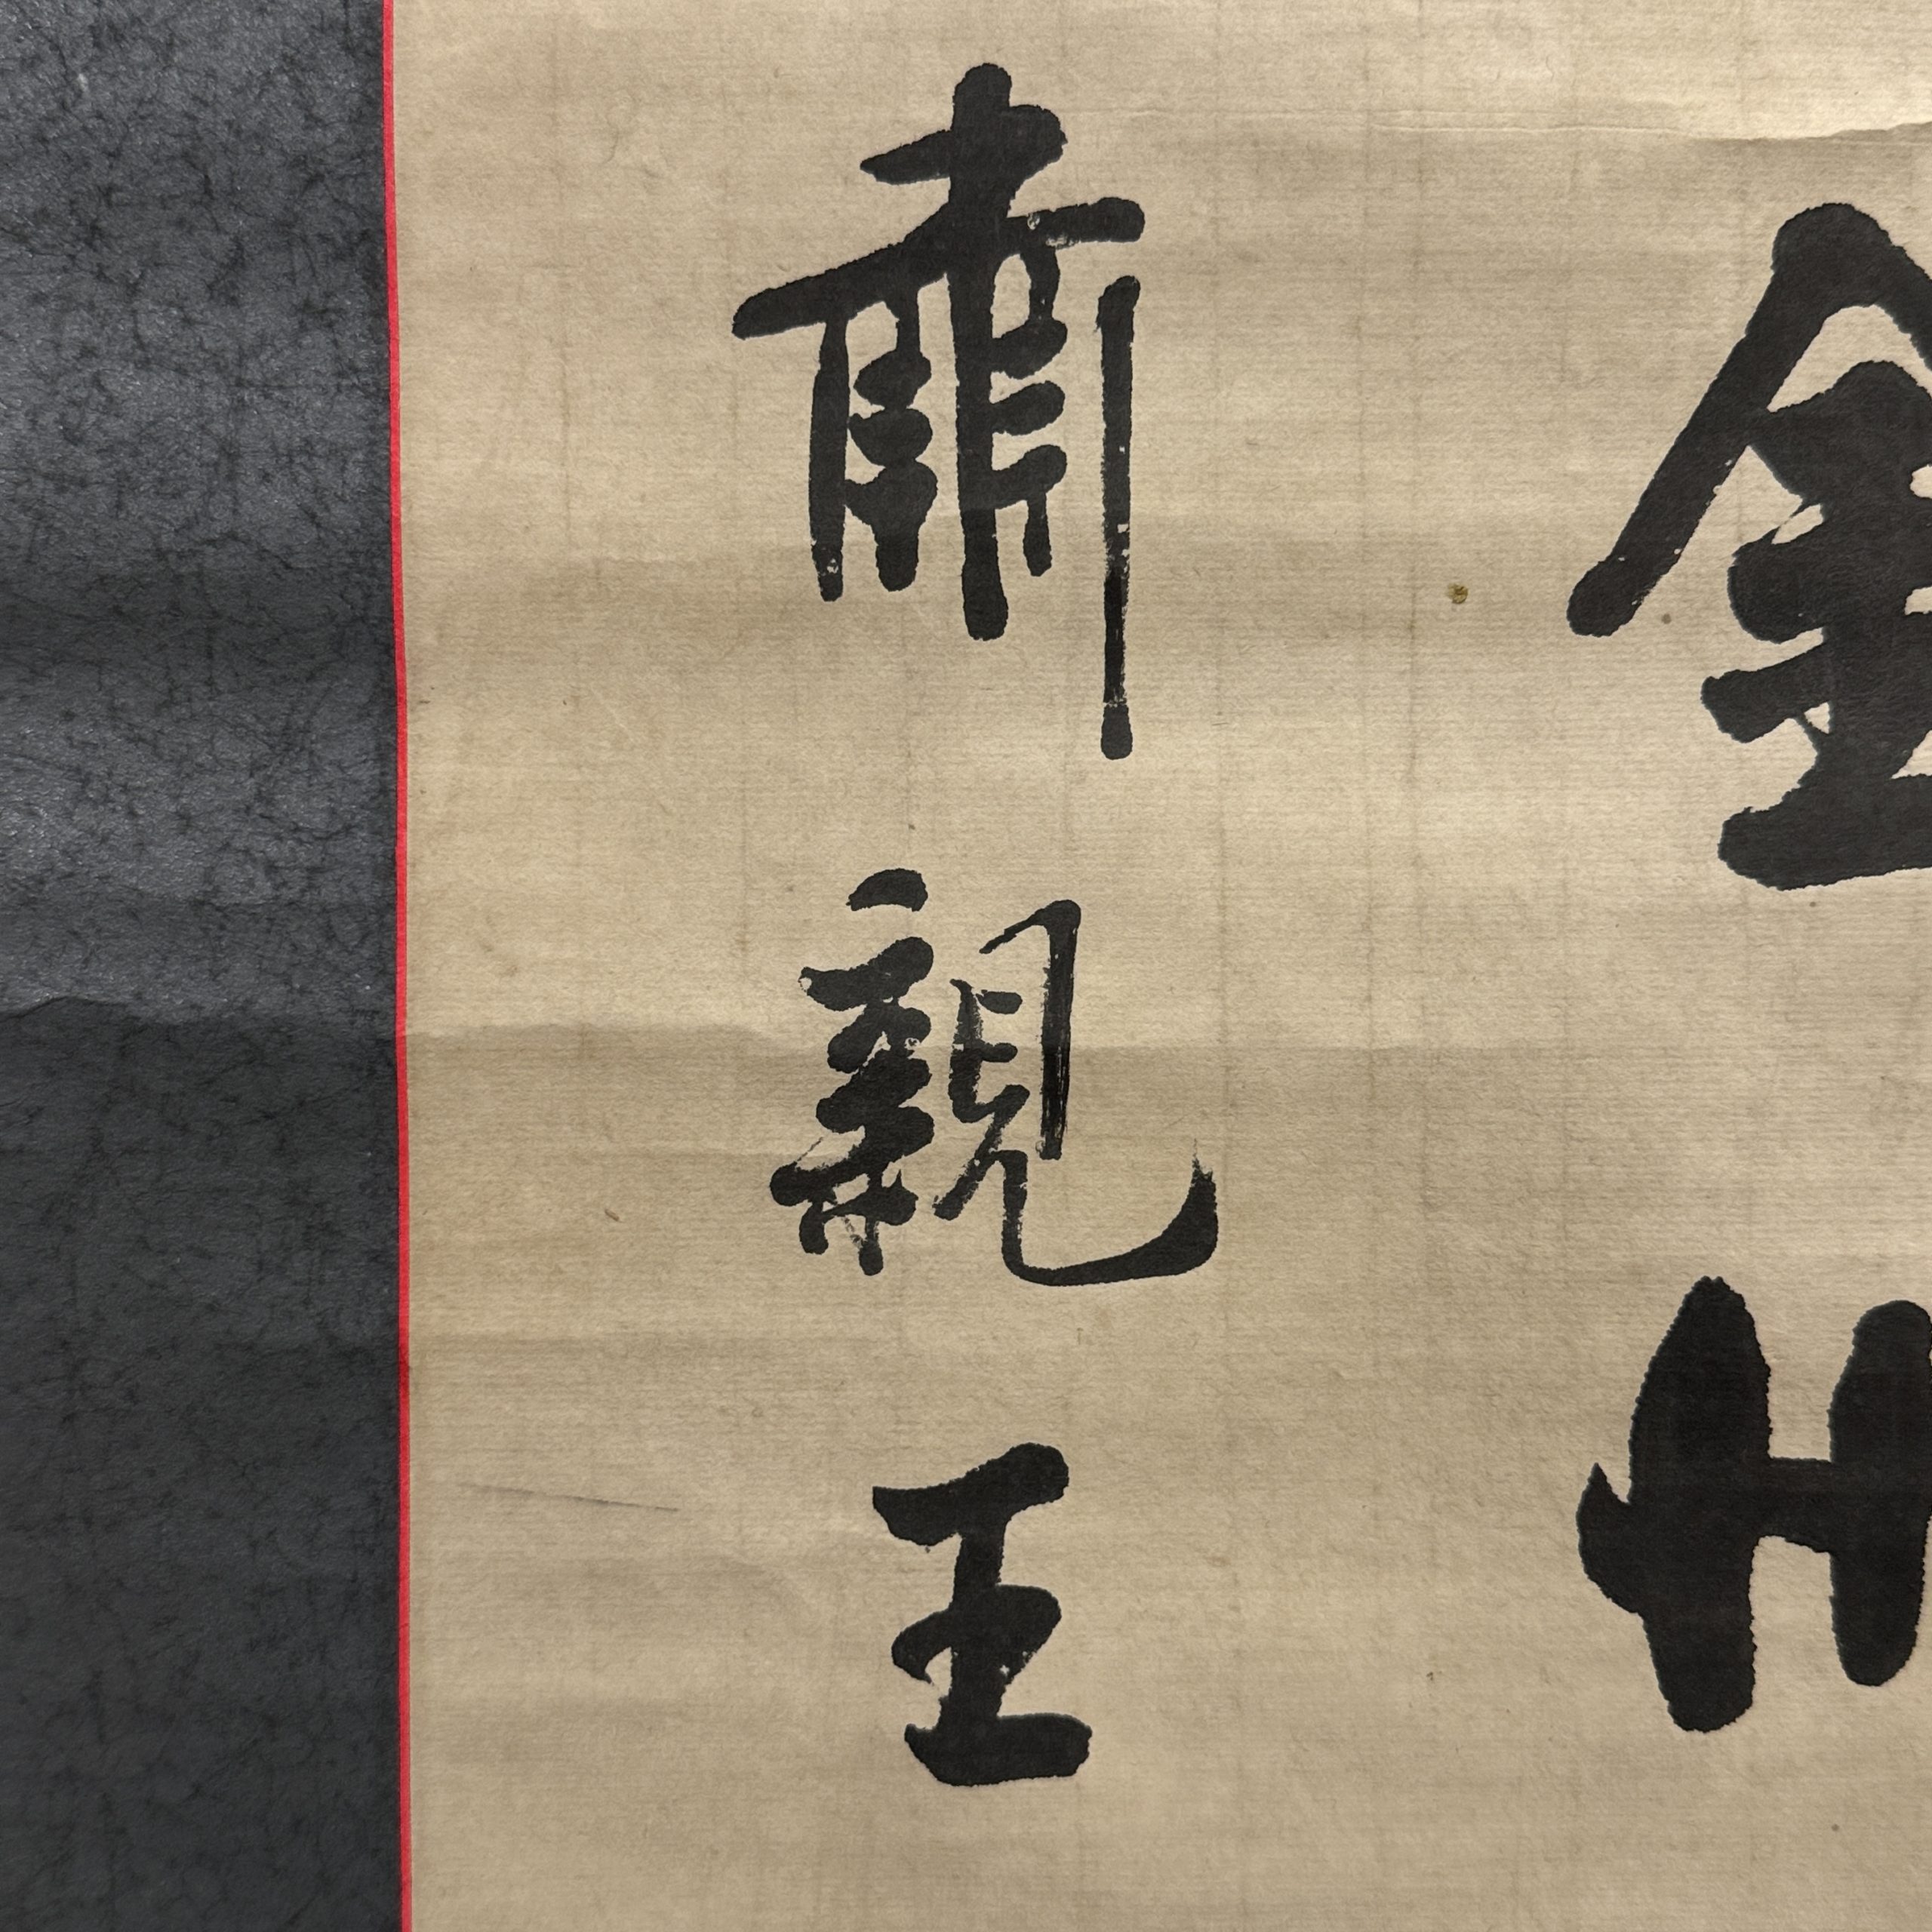 金州
肅親王